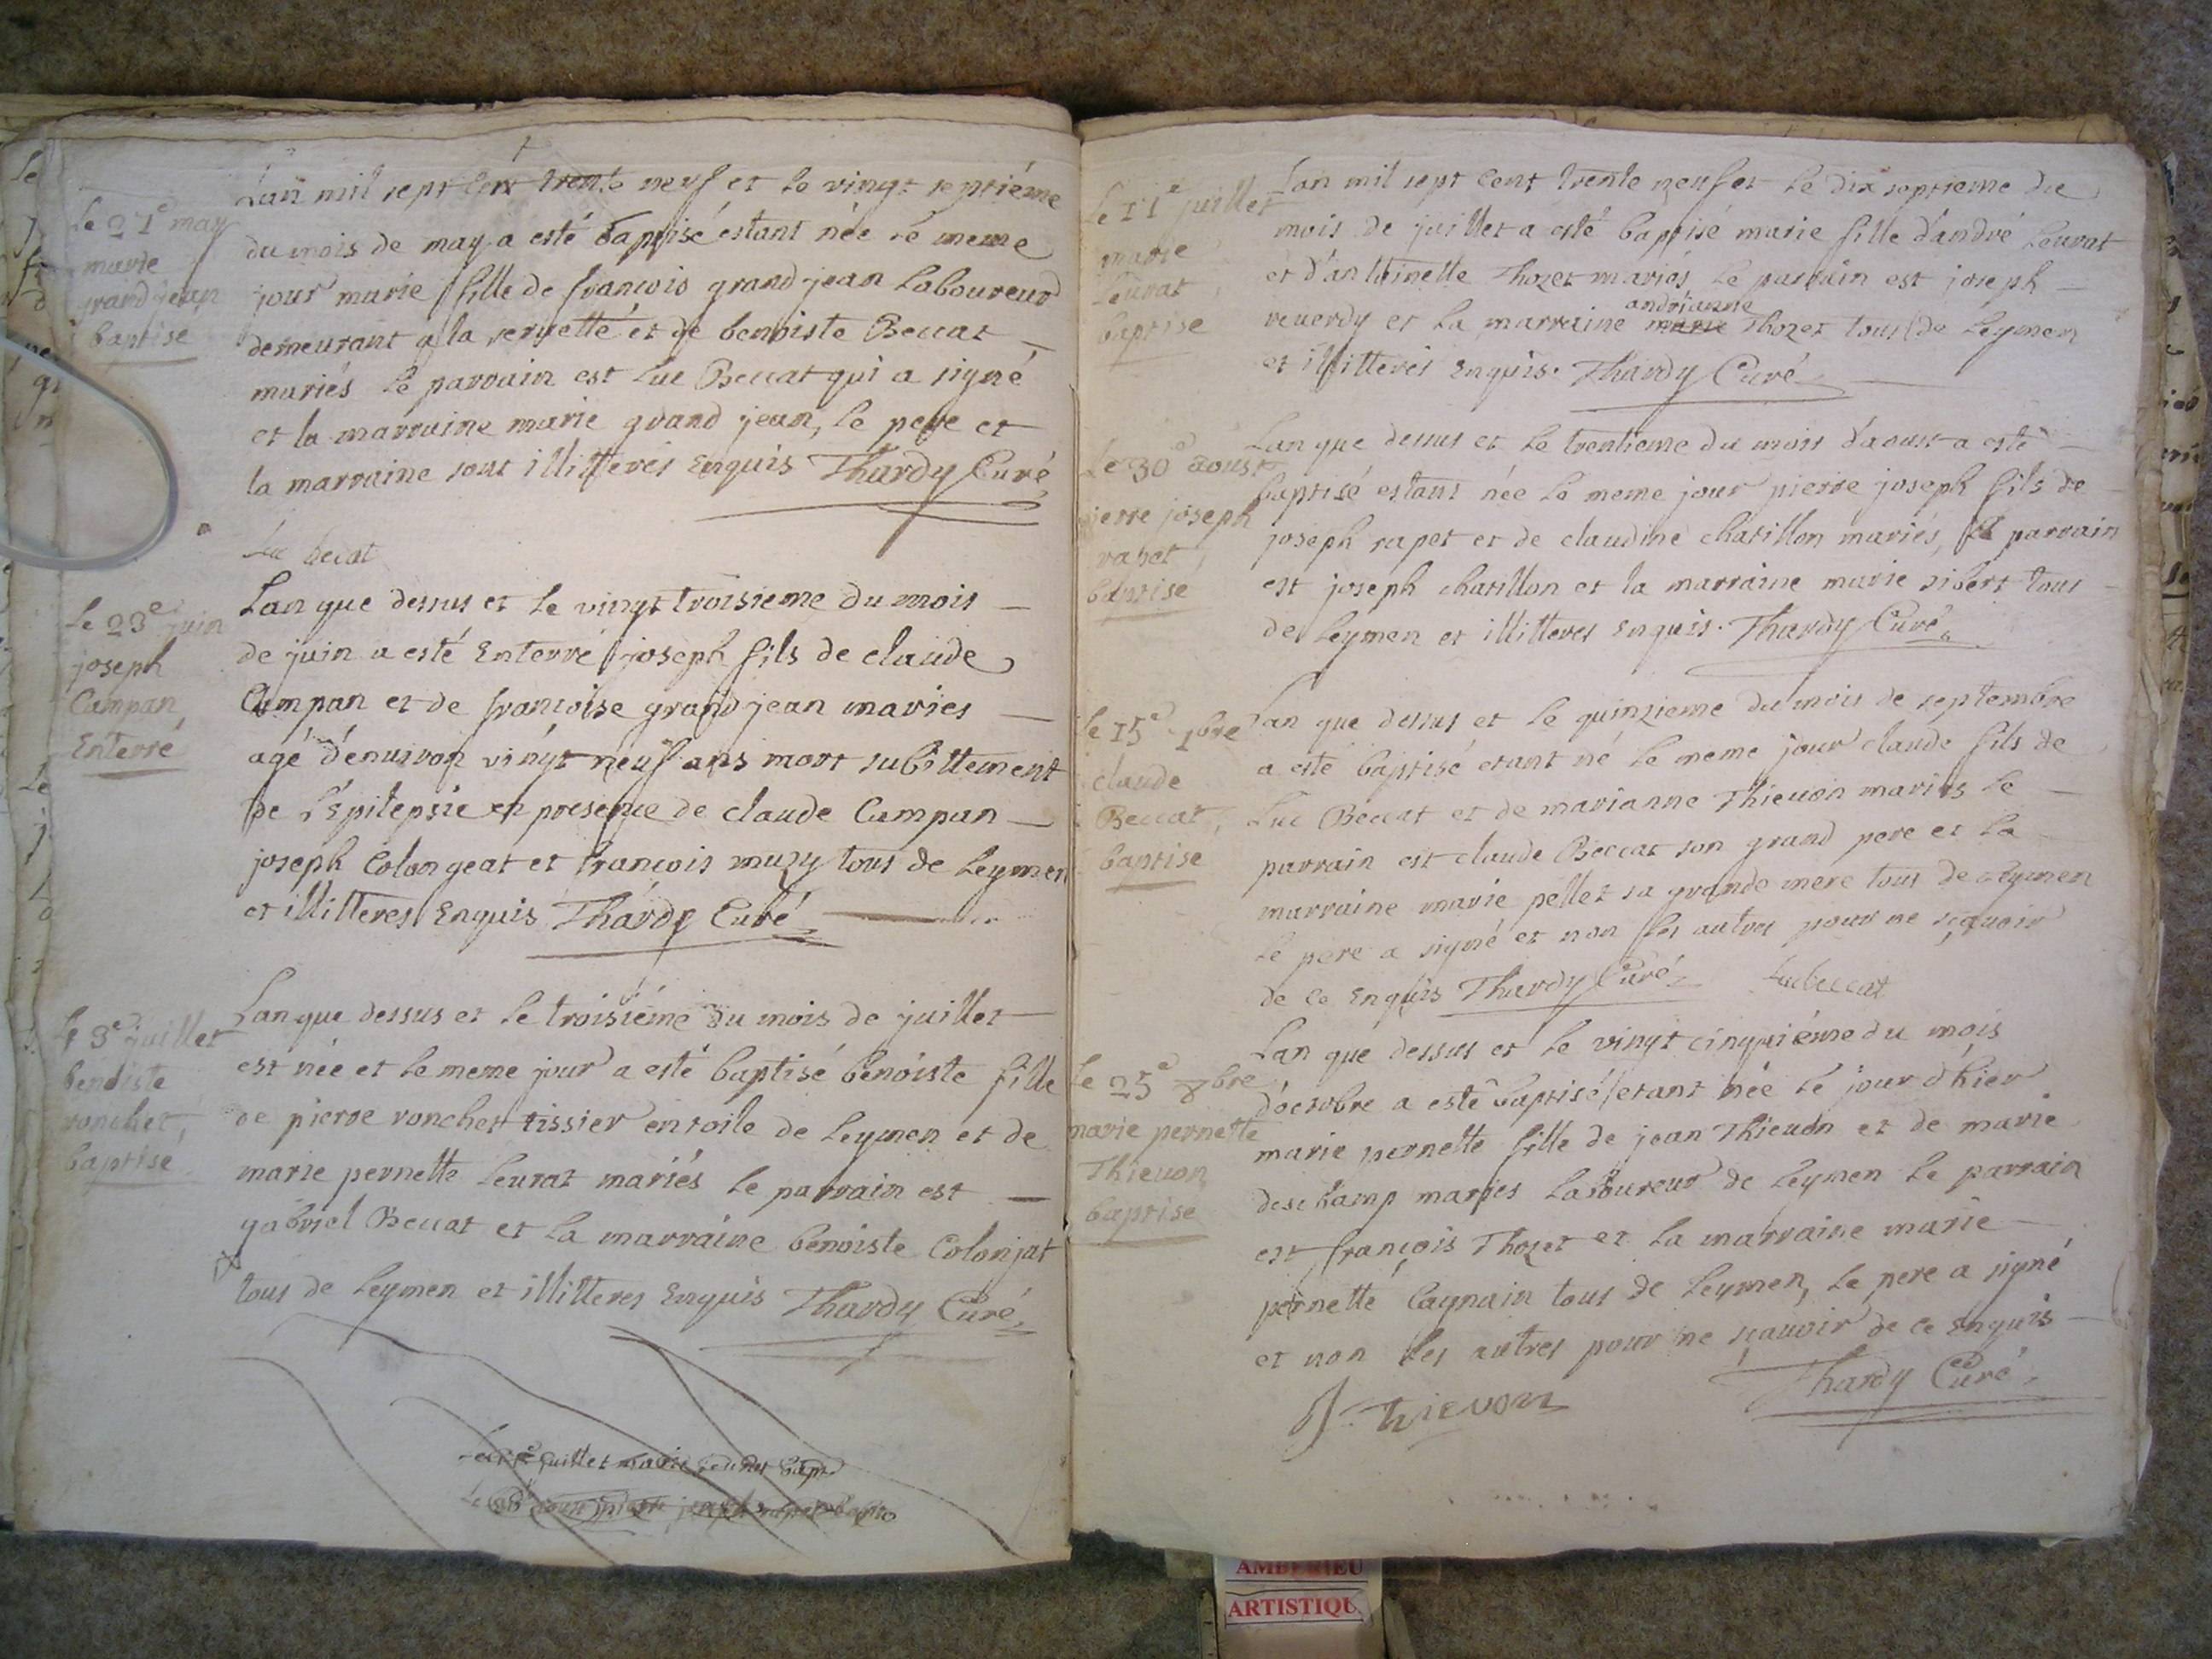 Le 27e may
marie
grand jean
baptise
Lan mil sept cent trente neuf et le vingt septiéme
du mois de may a esté baptisé estant née le meme
jour marie fille de francois grand jean Laboureur
demeurant a la servette et de benoiste Beccat
mariés le parrain est Luc Beccat qui a signé
et la marraine marie grand jean, le pere et
la marraine sont illitterés Enquis Thardy Curé
Luc becat
Le 23e juin
joseph
Campan
Enterré
Lan que dessus et le vingt troisieme du mois
de juin a esté Enterré joseph fils de claude
Campan et de francoise grand jean maries
agé d'environ vingt neuf ans mort subittement
de l'Epilepsie en presence de claude Campan
joseph Colongeat et francois muzy tous de Leymen
et illitteres Enquis Thardy Curé
Le 3e juillet
benoiste
ronchet,
baptisé
Lan que dessus et le troisiéme du mois de juillet
est née et le meme jour a esté baptisé benoiste fille
de pierre ronchet tissier en toile de Leymen et de
marie pernette Leurat mariés le parrain est
gabriel Beccat et la marraine benoiste Colonjat
tous de Leymen et illitteres Enquis Thardy Curé
juillet marie Leurat bapt
pierre joseph
Le 17e juillet
marie
Leurat,
baptise
Lan mil sept cent trente neuf et le dix septieme du
mois de juillet a esté baptisé marie fille d'andré Leurat
et d'antoinette Thozet mariés le parrain est joseph
andrianne
reuerdy et la marraine marie Thozet tous de Leymen
et illitterés Enquis. Thardy Curé
Le 30e aoust
pierre joseph
rapet,
baptise
Lan que dessus et le trentieme du mois d'aoust a esté
baptisé estant née le meme jour pierre joseph fils de
joseph rapet et de claudine chatillon mariés, le parrain
est joseph chatillon et la marraine marie sibert tous
de Leymen et illitteres Enquis. Thardy Curé
Le 15e 7bre
claude
Beccat,
baptise
Lan que dessus et le quinzieme du mois de septembre
a esté baptisé etant né le meme jour claude fils de
Luc Beccat et de marianne Thieuon mariés le
parrain est claude Beccat son grand pere et la
marraine marie pellet sa grande mere tous de Leymen
le pere a signé et non les autres pour ne sçavoir
de ce Enquis Thardy Curé Luc beccat
Le 25e 8bre
marie pernette
Thieuon
baptise
Lan que dessus et le vingt cinquiéme du mois
d'octobre a esté baptisé etant née le jour d'hier
marie pernette fille de jean Thieuon et de marie
deschamp maries Laboureur de Leymen le parrain
est françois Thozet et la marraine marie
pernette Caynain tous de Leymen, le pere a signé
et non les autres pour ne sçauoir de ce Enquis
J. Thievon Thardy Curé
AMBERIEU
ARTISTIQU